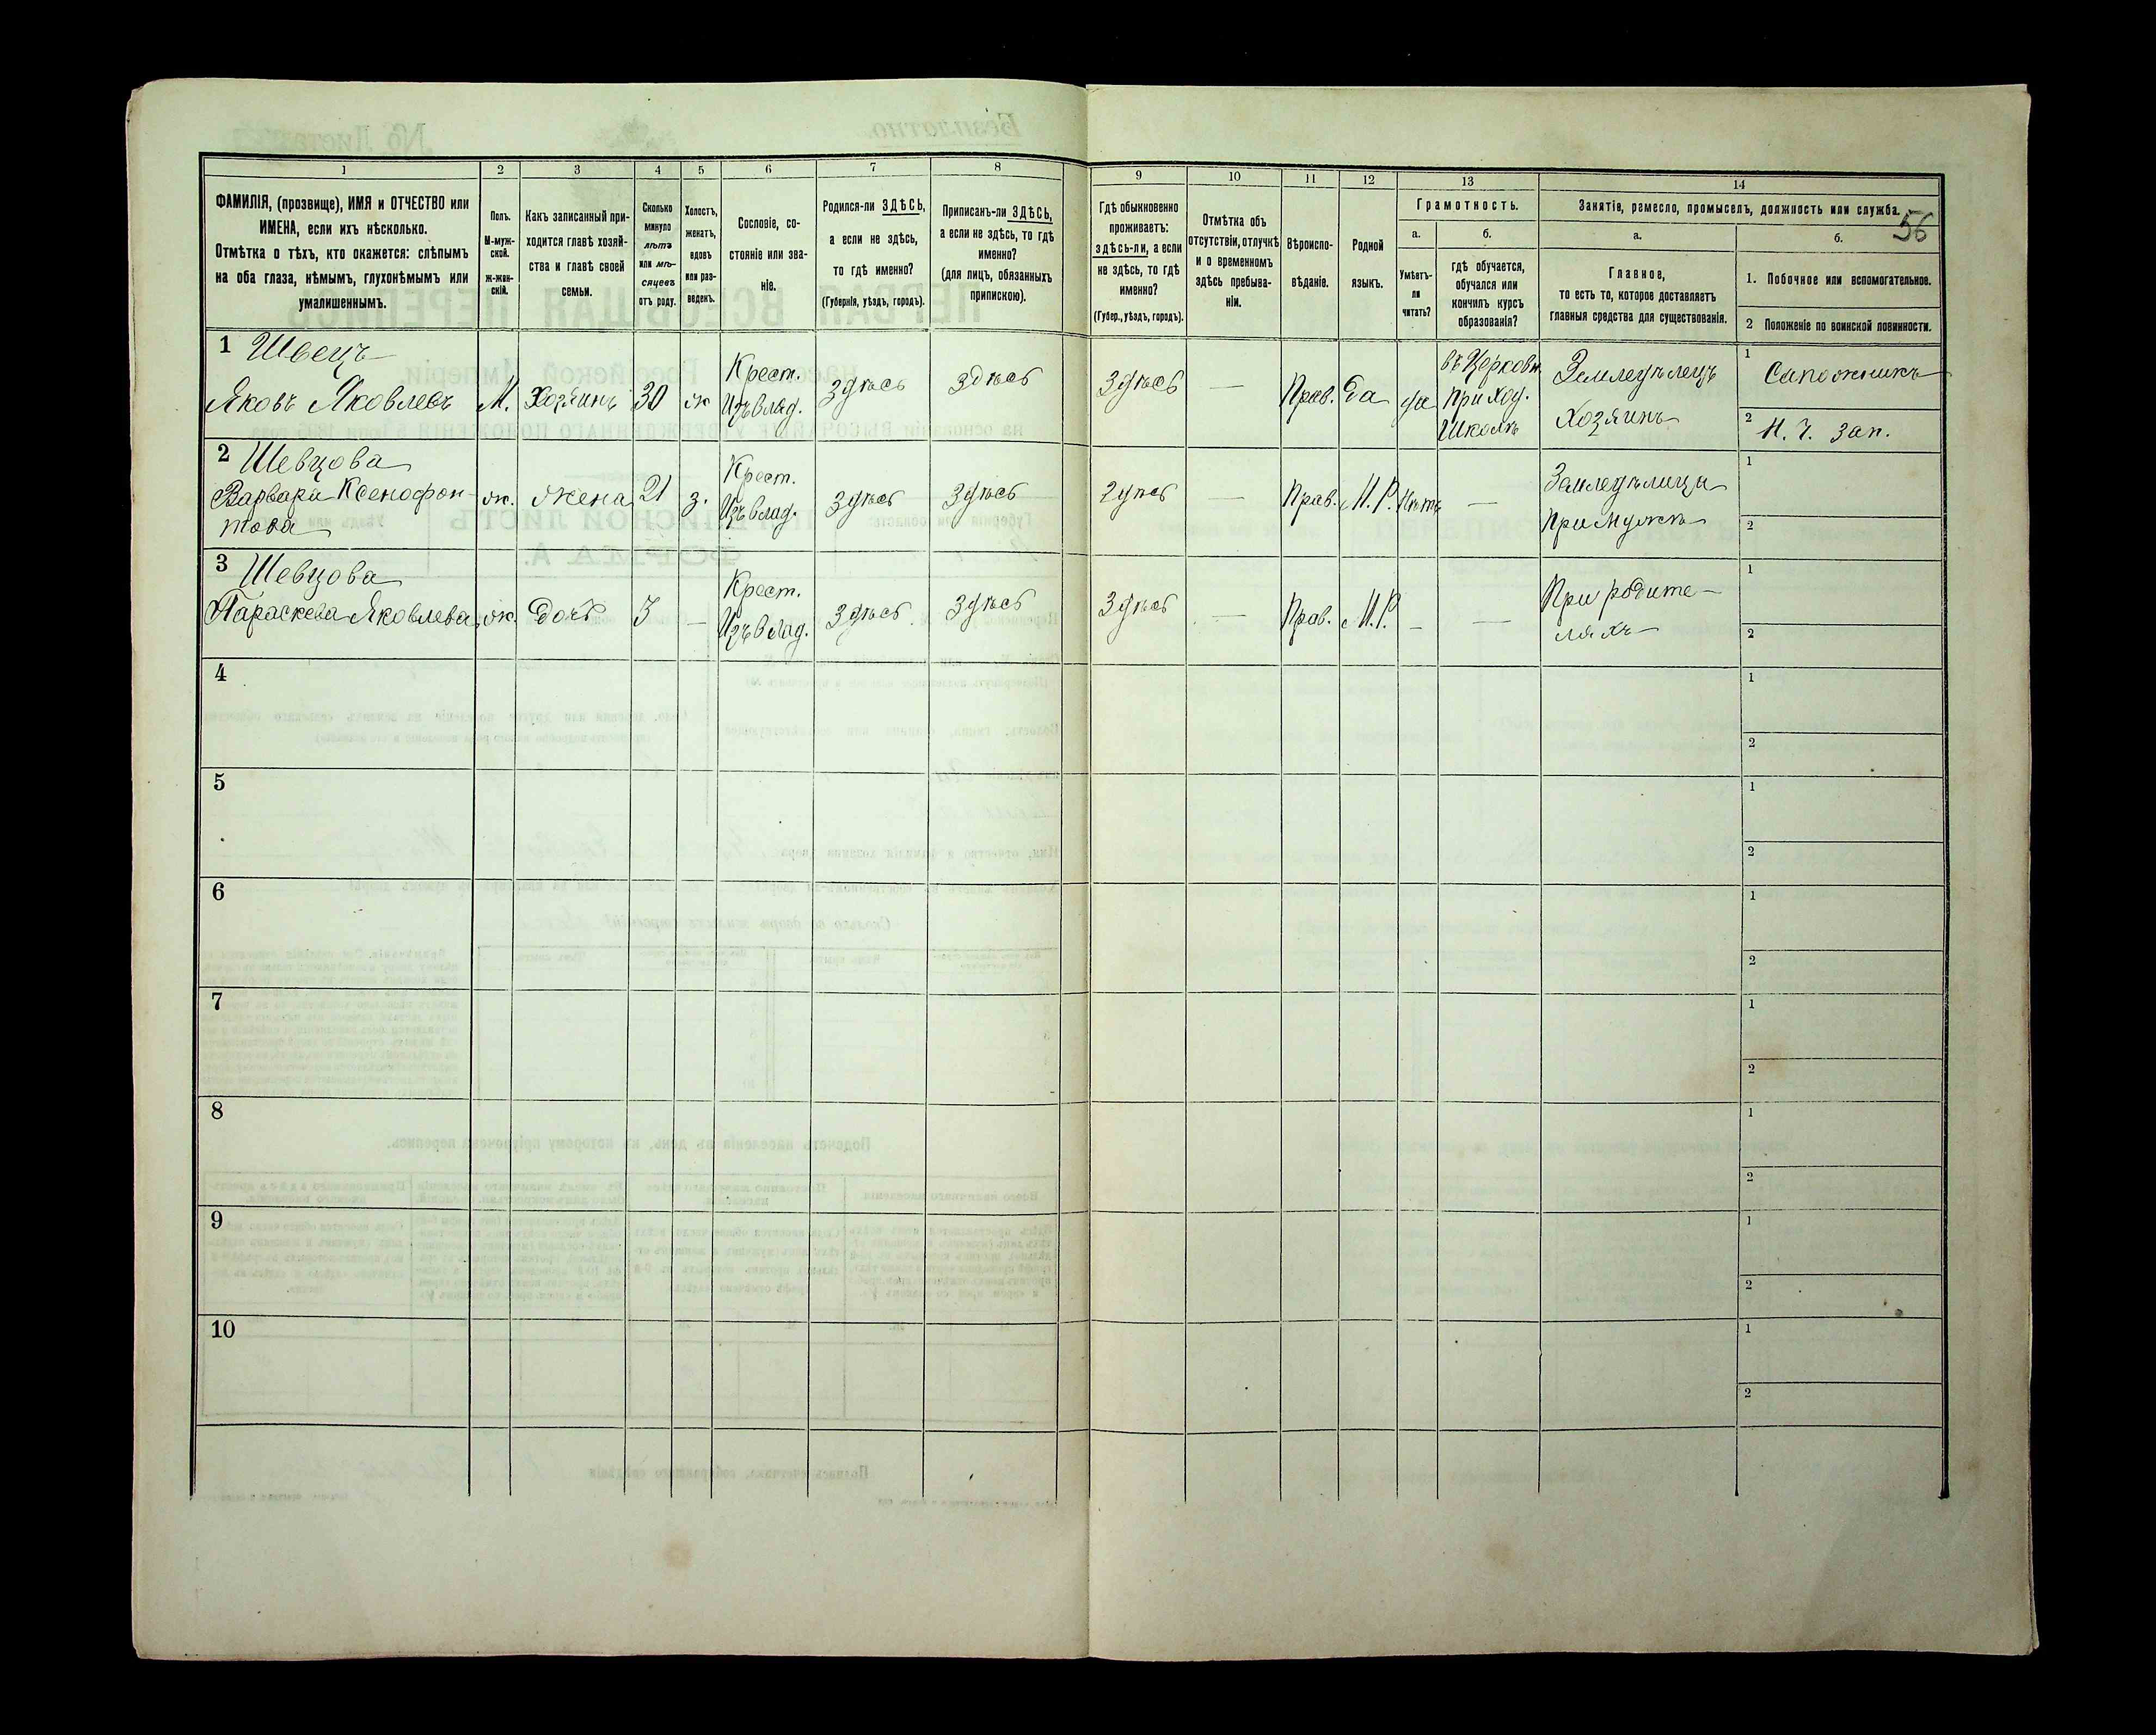 1
2
3
4
5
6
7
8
9
10
11
12
13
14
56
ФАМИЛІЯ, (прозвище), ИМЯ и ОТЧЕСТВО или
ИМЕНА, если ихъ нѣсколько.
Отмѣтка о тѣхъ, кто окажется: слѣпымъ
на оба глаза, нѣмымъ, глухонѣмымъ или
умалишеннымъ.
Полъ.
М-муж-
ской.
ж-жен-
скій.
Какъ записанный при-
ходится главѣ хозяй-
ства и главѣ своей
семьи.
Сколько
минуло
лѣтъ
или мѣ-
сяцевъ
отъ роду.
Холостъ,
женатъ,
вдовъ
или раз-
веденъ.
Сословіе, со-
стояніе или зва-
ніе.
Родился-ли ЗДѢСЬ,
а если не здѣсь,
то гдѣ именно?
(Губернія, уѣздъ, городъ).
Приписанъ-ли ЗДѢСЬ,
а если не здѣсь, то гдѣ
именно?
(для лицъ, обязанныхъ
припискою).
Гдѣ обыкновенно
проживаетъ:
здѣсь-ли, а если
не здѣсь, то гдѣ
именно?
(Губер., уѣздъ, городъ).
Отмѣтка объ
отсутствіи, отлучкѣ
и о временномъ
здѣсь пребыва-
ніи.
Вѣроиспо-
вѣданіе.
Родной
языкъ.
Грамотность.
а.
Умѣетъ-
ли
читать?
б.
гдѣ обучается,
обучался или
кончилъ курсъ
образованія?
Занятіе, ремесло, промыселъ, должность или служба.
а.
Главное,
то есть то, которое доставляетъ
главныя средства для существованія.
б.
1. Побочное или вспомогательное.
2 Положеніе по воинской повинности.
1 Швецъ
Яковъ Яковлевъ
М.
Хозяинъ
30
ж
Крест.
Изъ влад.
Здѣсь
Здѣсь
Здѣсь
—
Прав.
да
въ Церковн.
Приход.
Школѣ
Земледѣлецъ
Хозяинъ
1
Сапожникъ
2
Н. Ч. зап.
2 Шевцова
Варвара Ксенофон-
това
ж.
жена
21
З.
Крест.
Изъ влад.
Здѣсь
Здѣсь
Здѣсь
—
Прав.
М.Р.
Нѣтъ
—
Земледѣлица
При Мужѣ
1
2
3 Шевцова
Параскева Яковлева
ж.
Дочь
—
Крест.
Изъ влад.
Здѣсь
Здѣсь
Здѣсь
—
Прав.
М.Р.
—
—
При родите-
ляхъ
1
2
4
1
2
5
1
2
6
1
2
7
1
2
8
1
2
9
1
2
10
1
2